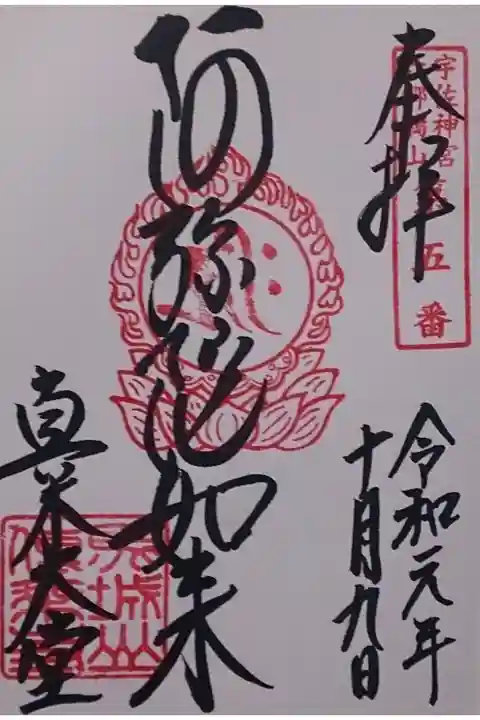 奉拝
宇佐神宮
六郷満山
五番
令和元年
十月九日
阿弥陀如来
真木大堂
馬城山